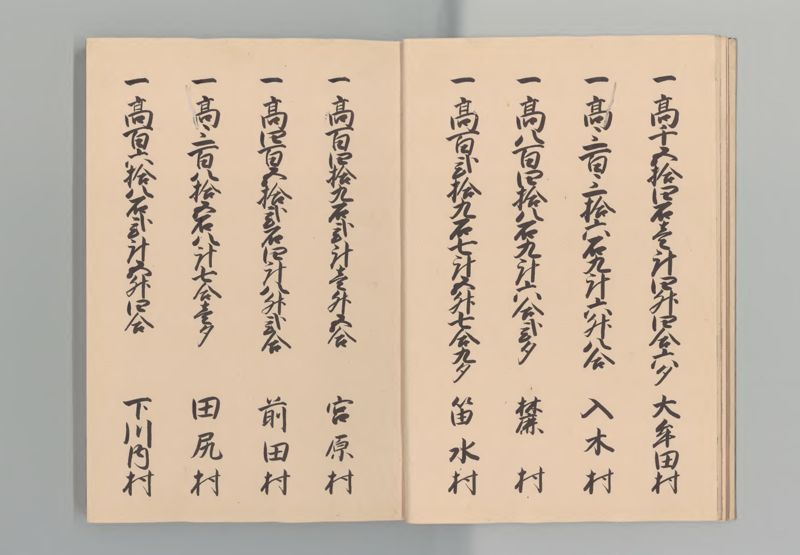 一 高千五拾四石壱斗四升四合六夕 大牟田村
一 高三百三拾六石九斗六升八合 入木村
一 高八百四拾八石九斗六合弐夕 麓村
一 高百弐拾九石七斗五升七合九夕 笛水村
一 高百四拾九石弐斗壱升五合 宮原村
一 高四百五拾弐石四斗八升弐合 前田村
一 高三百八拾五石八斗七合壱夕 田尻村
一 高百六拾八石弐斗五升四合 下川内村